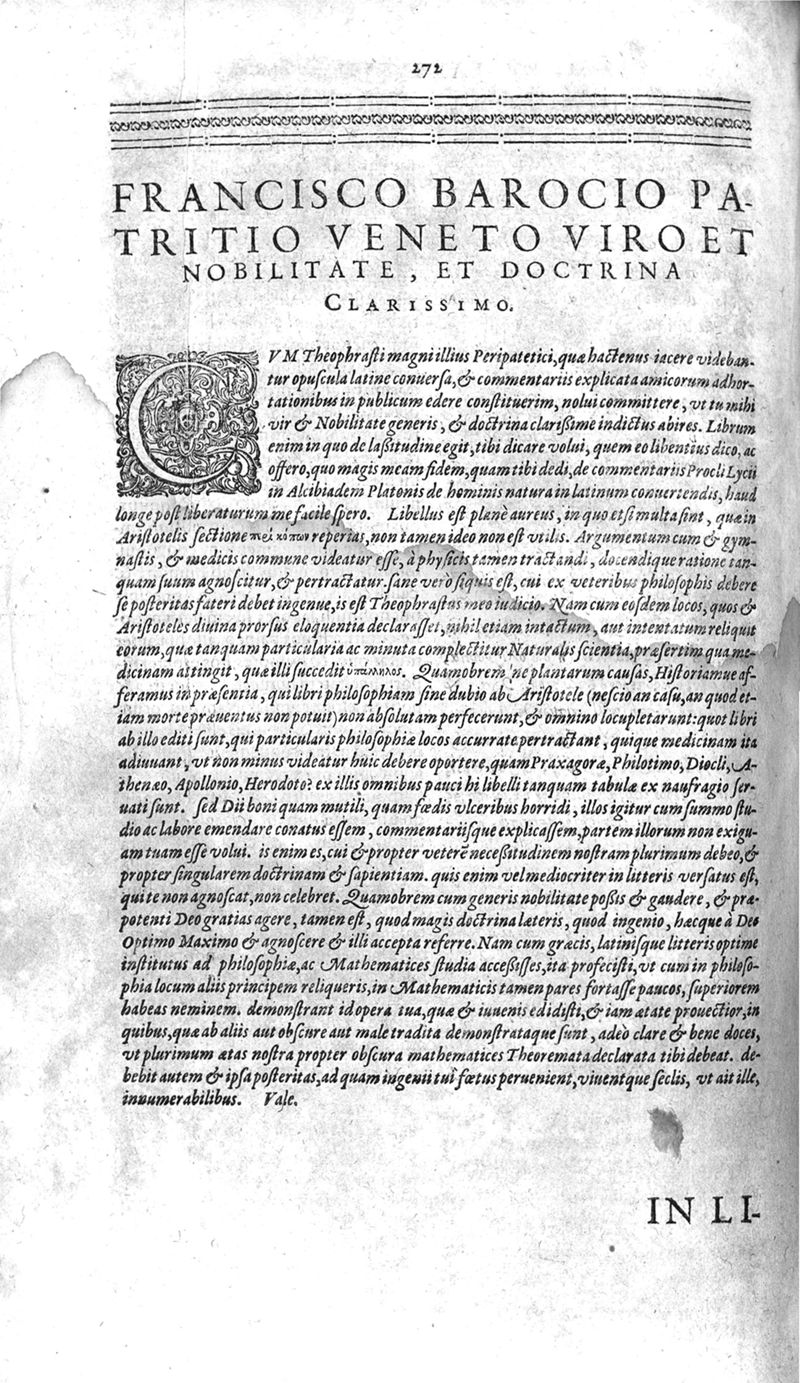 272
FRANCISCO BAROCIO PA-
TRITIO VENETO VIRO ET
NOBILITATE, ET DOCTRINA
CLARISSIMO.
CVM Theophraſti magni illius Peripatetici, quæ hactenus iacere videban-
tur opuſcula latine conuerſa, & commentariis explicata amicorum adhor-
tationibus in publicum edere conſtituerim, nolui committere, vt tu mihi
vir & Nobilitate generis, & doctrina clariſſime indictus abires. Librum
enim in quo de laſſitudine egit, tibi dicare volui, quem eo libentius dico, ac
offero, quo magis meam fidem, quam tibi dedi, de commentariis Procli Lycii
in Alcibiadem Platonis de hominis natura in latinum conuertendis, haud
longe poſt liberaturum me facile ſpero. Libellus eſt planè aureus, in quo etſi multa ſint, quæ in
Ariſtotelis ſectione περὶ κόπων reperias, non tamen ideo non eſt vtilis. Argumentum cum & gym-
naſtis, & medicis commune videatur eſſe, à phyſicis tamen tractandi, docendique ratione tan-
quam ſuum agnoſcitur, & pertractatur. ſane vero ſiquis eſt, cui ex veteribus philoſophis debere
ſe poſteritas fateri debet ingenue, is eſt Theophraſtus meo iudicio. Nam cum eoſdem locos, quos &
Ariſtoteles diuina prorſus eloquentia declaraſſet, nihil etiam intactum, aut intentatum reliquit
eorum, quæ tanquam particularia ac minuta complectitur Naturalis ſcientia, præſertim qua me-
dicinam attingit, quæ illi ſuccedit ὑπάλληλος. Quamobrem ne plantarum cauſas, Hiſtoriamue af-
feramus in præſentia, qui libri philoſophiam ſine dubio ab Ariſtotele (neſcio an caſu, an quod et-
iam morte præuentus non potuit) non abſolutam perfecerunt, & omnino locupletarunt: quot libri
ab illo editi ſunt, qui particularis philoſophiæ locos accurrate pertractant, quique medicinam ita
adiuuant, vt non minus videatur huic debere oportere, quam Praxagoræ, Philotimo, Diocli, A-
thenæo, Apollonio, Herodoto? ex illis omnibus pauci hi libelli tanquam tabulæ ex naufragio ſer-
uati ſunt. ſed Dii boni quam mutili, quam fœdis vlceribus horridi, illos igitur cum ſummo ſtu-
dio ac labore emendare conatus eſſem, commentariiſque explicaſſem, partem illorum non exigu-
am tuam eſſe volui. is enim es, cui & propter veterẽ neceſſitudinem noſtram plurimum debeo, &
propter ſingularem doctrinam & ſapientiam. quis enim vel mediocriter in litteris verſatus eſt,
qui te non agnoſcat, non celebret. Quamobrem cum generis nobilitate poſſis & gaudere, & præ-
potenti Deo gratias agere, tamen eſt, quod magis doctrina læteris, quod ingenio, hæcque à Deo
Optimo Maximo & agnoſcere & illi accepta referre. Nam cum græcis, latiniſque litteris optime
inſtitutus ad philoſophiæ, ac Mathematices ſtudia acceſſiſſes, ita profeciſti, vt cum in philoſo-
phia locum aliis principem reliqueris, in Mathematicis tamen pares fortaſſe paucos, ſuperiorem
habeas neminem. demonſtrant id opera tua, quæ & iuuenis edidiſti, & iam ætate prouectior, in
quibus, quæ ab aliis aut obſcure aut male tradita demonſtrataque ſunt, adeò clare & bene doces,
vt plurimum ætas noſtra propter obſcura mathematices Theoremata declarata tibi debeat. de-
bebit autem & ipſa poſteritas, ad quam ingenii tui fœtus peruenient, viuentque ſeclis, vt ait ille,
innumerabilibus. Vale.
IN LI-